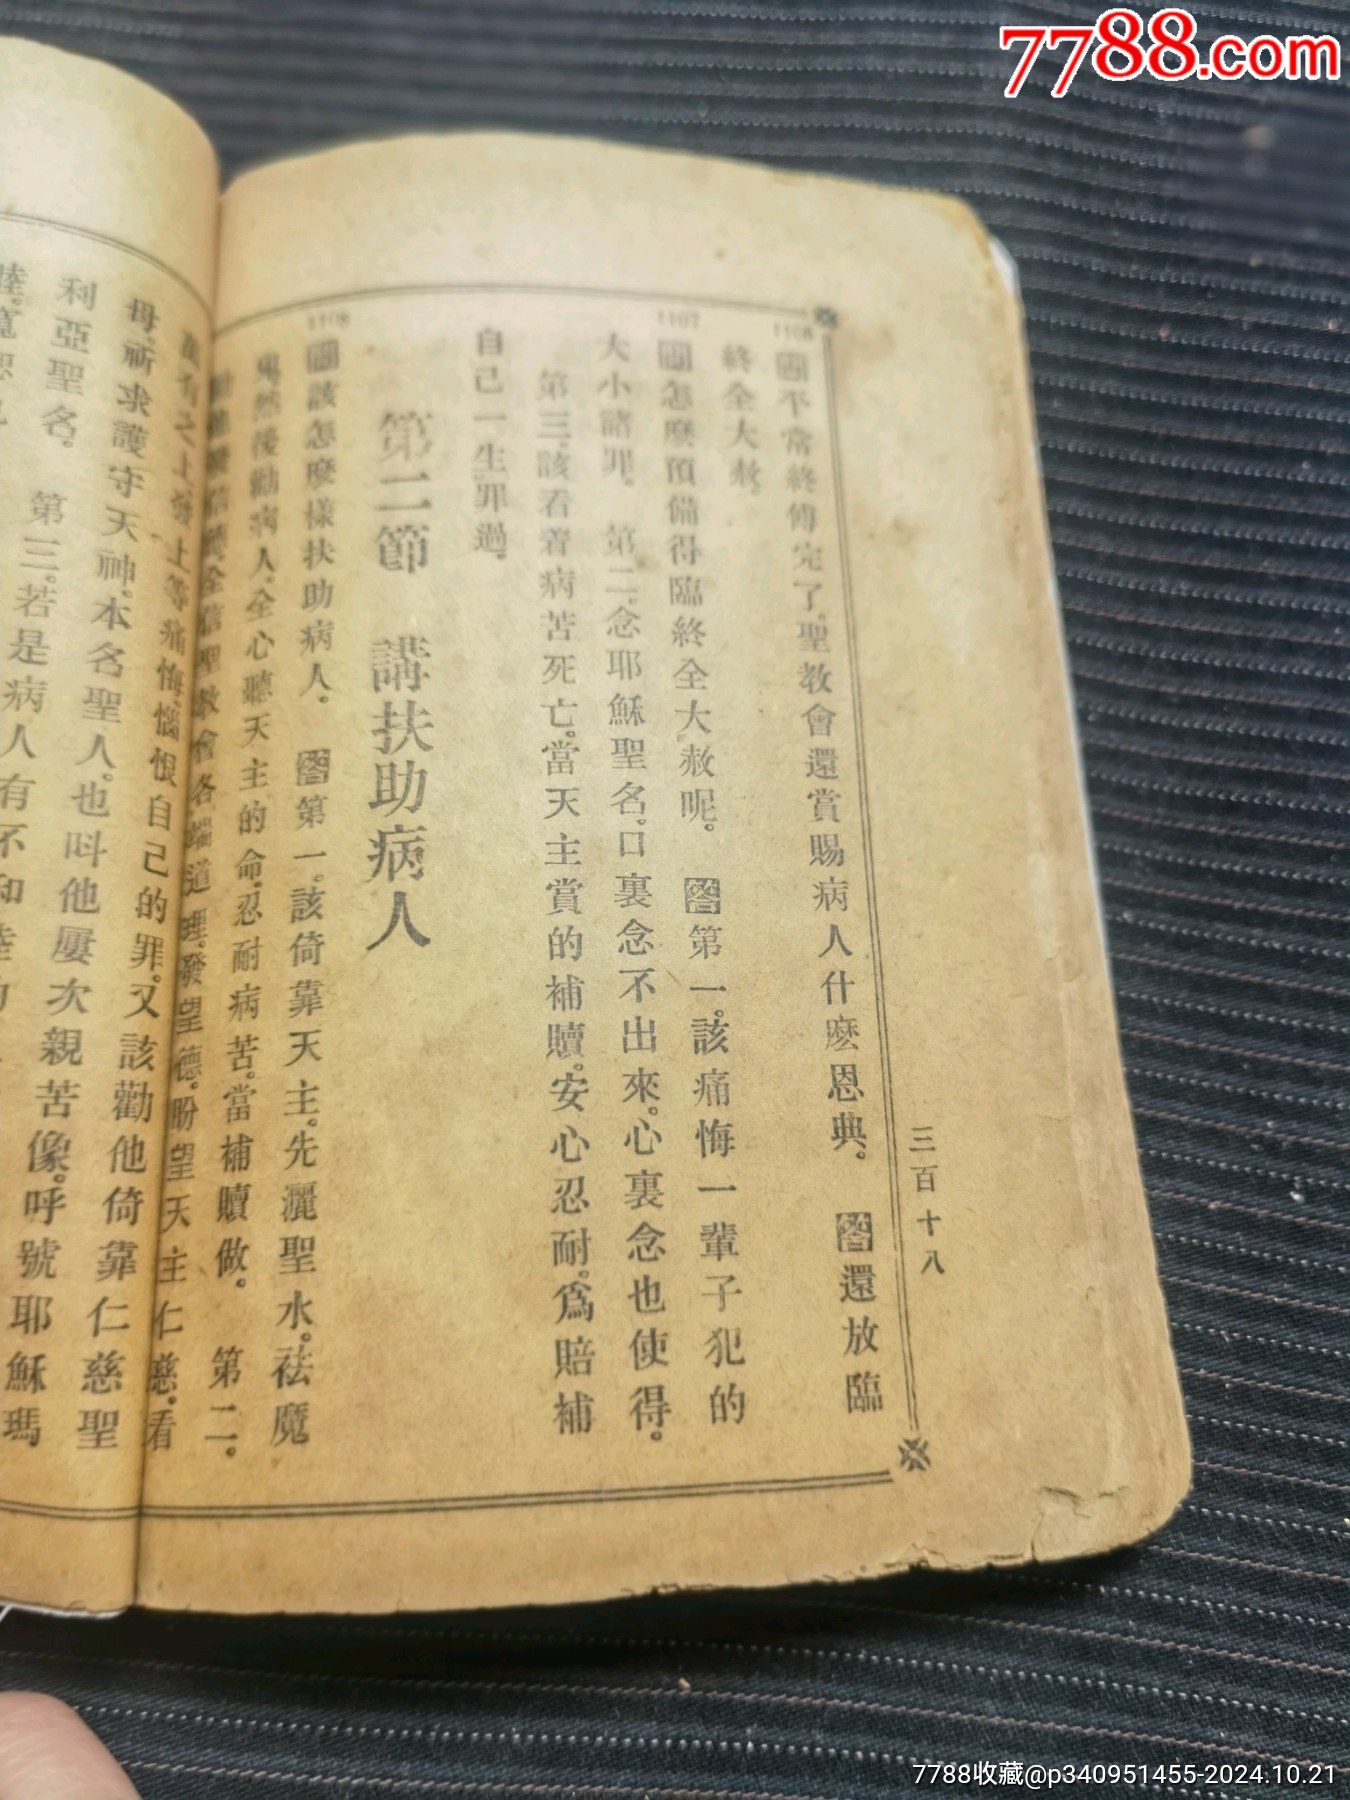 7788.com
三百十八
1106
問平常終傅完了。聖教會還賞賜病人什麽恩典。 答還放臨
終全大赦。
1107
問怎麽預備得臨終全大赦呢。 答第一。該痛悔一輩子犯的
大小諸罪。 第二。念耶穌聖名。口裏念不出來。心裏念也使得。
第三。該看着病苦死亡。當天主賞的補贖。安心忍耐。爲賠補
自己一生罪過。
第二節 講扶助病人
1108
問該怎麽樣扶助病人。 答第一。該倚靠天主。先灑聖水。祛魔
鬼。然後勸病人。全心聽天主的命。忍耐病苦。當補贖做。 第二。
信德。全信聖教會各端道理。發望德。盼望天主仁慈。看
上等痛悔。惱恨自己的罪。又該勸他倚靠仁慈聖
母。祈求護守天神。本名聖人。也呌他屢次親苦像。呼號耶穌瑪
利亞聖名。 第三。若是病人有不和睦的
7788收藏@p340951455-2024.10.21